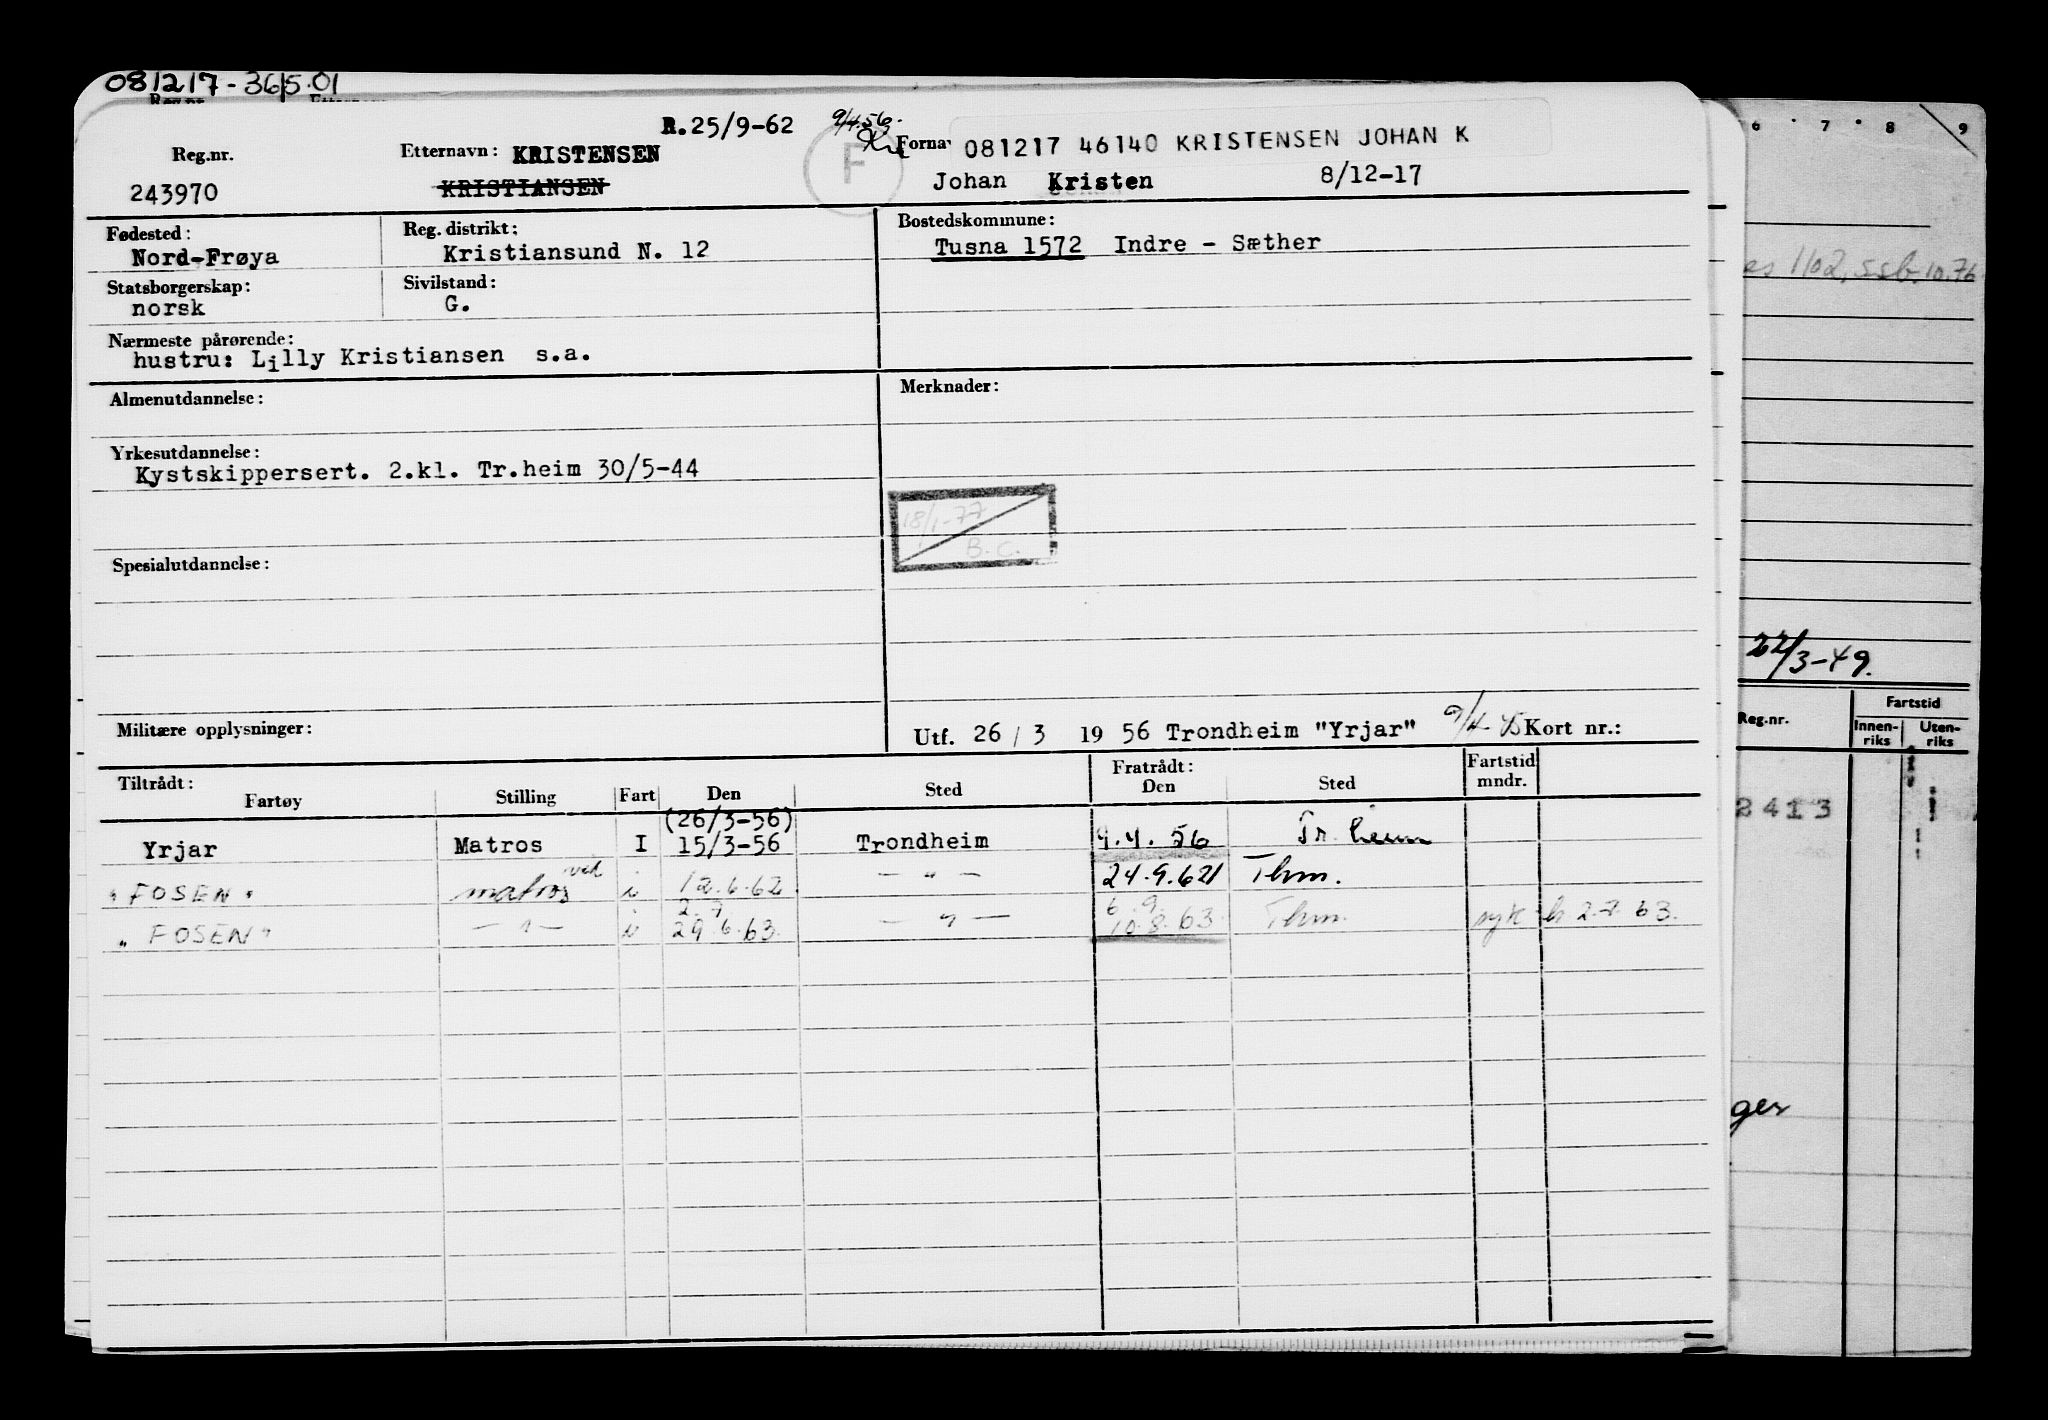 081217-3615.01
R.25/9-62 9/4.56.
Reg.nr. Etternavn: KRISTENSEN F Forna 081217 46140 KRISTENSEN JOHAN K
243970 KRISTIANSEN Johan Kristen 8/12-17
Fødested: Reg. distrikt: Bostedskommune:
Nord-Frøya Kristiansund N. 12 Tusna 1572 Indre - Sæther
Statsborgerskap: Sivilstand:
norsk G.
Nærmeste pårørende:
hustru: Lilly Kristiansen s.a.
Almenutdannelse: Merknader:
Yrkesutdannelse:
Kystskippersert. 2.kl. Tr.heim 30/5-44
18/1-77
B.C.
Spesialutdannelse:
Militære opplysninger: Utf. 26 / 3 19 56 Trondheim "Yrjar" 9/4 Kort nr.:
Tiltrådt: Fratrådt: Fartstid
Fartøy Stilling Fart Den Sted Den Sted mndr.
(26/3-56)
Yrjar Matros I 15/3-56 Trondheim 9.4.56 Tr.heim
"FOSEN" matros vik i 12.6.62 - " - 24.9.62 Thm.
2.7 6.9.
"FOSEN" - " - i 29.6.63 - " - 10.8.63 Thm. syk h 2.7.63.
6 7 8 9
1102, ssb. 10.76
22/3-49.
Reg.nr. Fartstid
Innen-riks Uten-riks
2413
ger